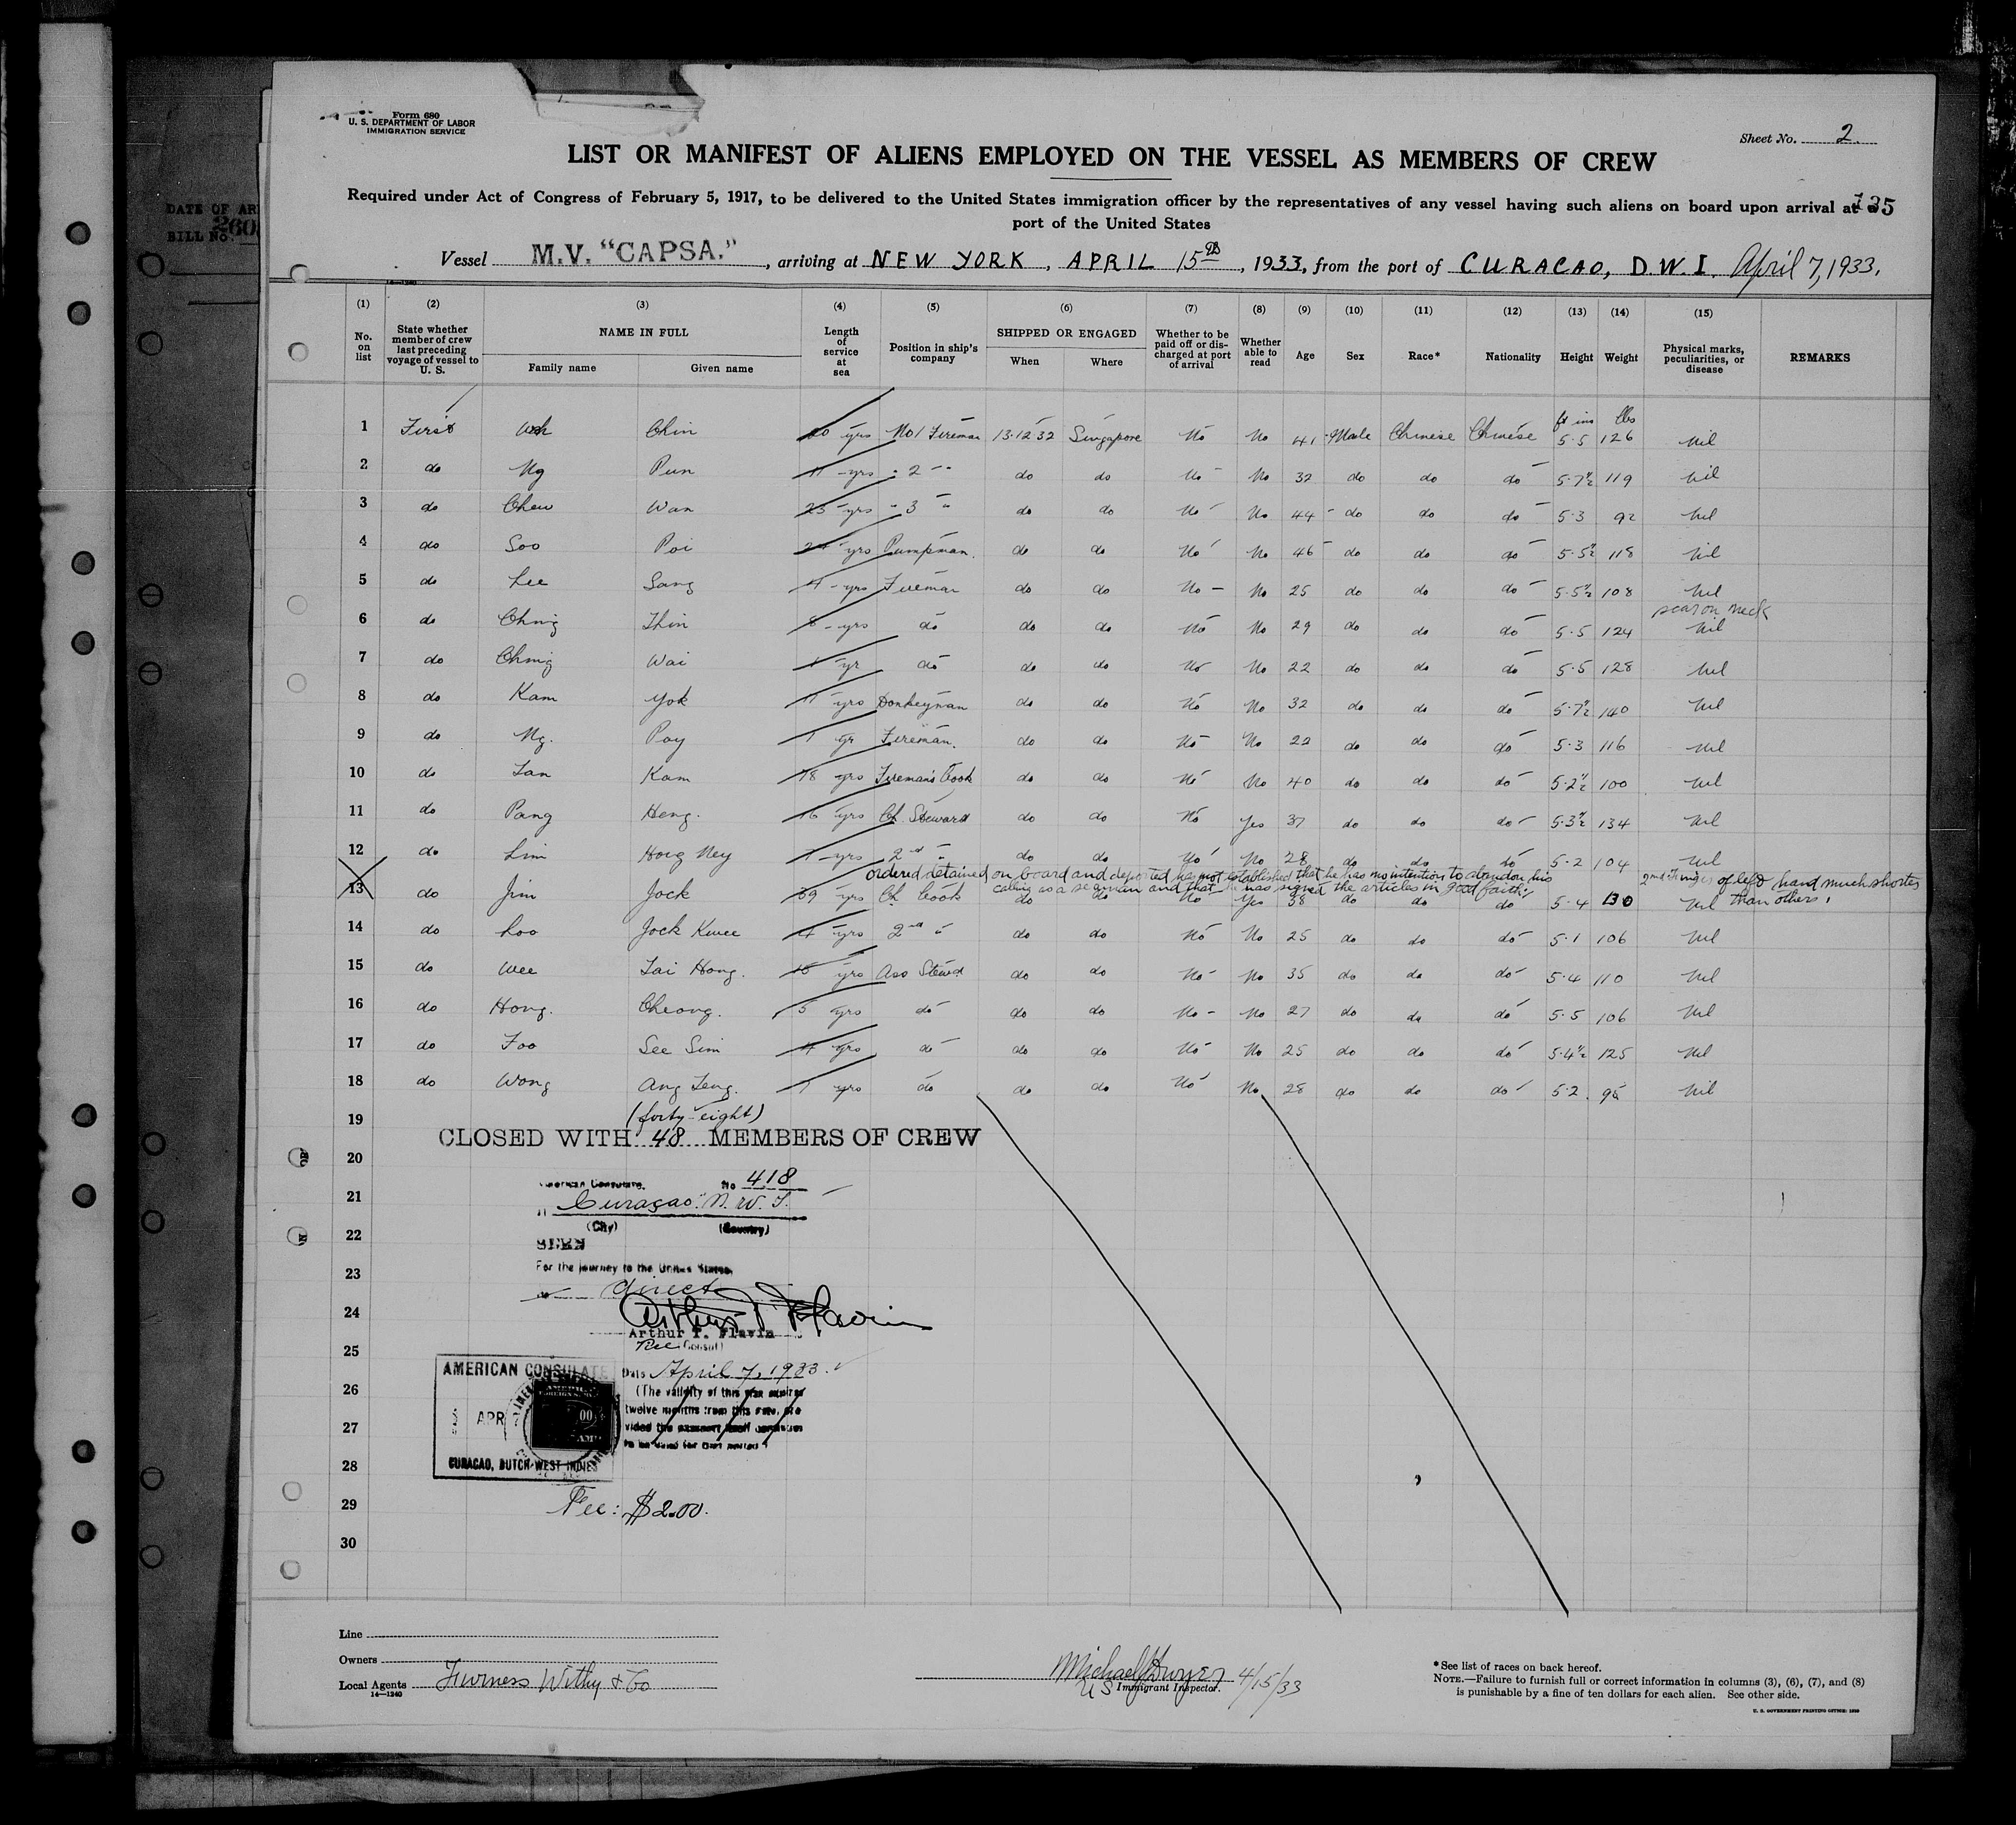 Form 680
U. S. DEPARTMENT OF LABOR
IMMIGRATION SERVICE
Sheet No. 2.
LIST OR MANIFEST OF ALIENS EMPLOYED ON THE VESSEL AS MEMBERS OF CREW
Required under Act of Congress of February 5, 1917, to be delivered to the United States immigration officer by the representatives of any vessel having such aliens on board upon arrival at
port of the United States
135
Vessel M.V. "CAPSA." , arriving at NEW YORK , APRIL 15th , 1933, from the port of CURACAO, D.W.I. April 7, 1933.
DATE OF AR
BILL No.
(1) (2) (3) (4) (5) (6) (7) (8) (9) (10) (11) (12) (13) (14) (15)
No. on list
State whether member of crew last preceding voyage of vessel to U. S.
NAME IN FULL
Family name Given name
Length of service at sea
Position in ship's company
SHIPPED OR ENGAGED
When Where
Whether to be paid off or discharged at port of arrival
Whether able to read
Age Sex Race* Nationality Height Weight
Physical marks, peculiarities, or disease
REMARKS
ft ins lbs
1 First Chin yrs No 1 Fireman 13.12.32 Singapore No No 41 Male Chinese Chinese 5.5 126 Nil
2 do Ng Pun yrs " 2 " do do No No 32 do do do 5.7½ 119 Nil
3 do Chew Wan 23 yrs " 3 " do do No No 44 do do do 5.3 92 Nil
4 do Soo Poi yrs Pumpman. do do No No 46 do do do 5.5½ 118 Nil
5 do Lee Sang 4 yrs Fireman do do No No 25 do do do 5.5½ 108 Nil
scar on neck
6 do Ching Thin 8 yrs do do do No No 29 do do do 5.5 124 Nil
7 do Ching Wai 1 yr do do do No No 22 do do do 5.5 128 Nil
8 do Kam Yok 11 yrs Donkeyman do do No No 32 do do do 5.7½ 140 Nil
9 do Ng. Poy 1 yr Fireman. do do No No 22 do do do 5.3 116 Nil
10 do Tan Kam 18 yrs Fireman's Cook do do No No 40 do do do 5.2½ 100 Nil
11 do Pang Heng. 16 yrs Ch. Steward do do No Yes 37 do do do 5.3½ 134 Nil
12 do Lim Hong Ney 7 yrs 2nd " do do No No 28 do do do 5.2 104 Nil
ordered detained on board and deported has not established that he has no intention to abandon his
calling as a seaman and that he has signed the articles in good faith;
2nd finger of left hand much shorter
than others.
13 do Jim Jock yrs Ch. Cook do do No Yes 38 do do do 5.4 130 Nil
14 do Loo Jock Kwee 4 yrs 2nd " do do No No 25 do do do 5.1 106 Nil
15 do Wee Tai Hong. yrs Ass Stewd do do No No 35 do do do 5.4 110 Nil
16 do Hong. Cheong. 5 yrs do do do No No 27 do do do 5.5 106 Nil
17 do Foo See Sim 4 yrs do do do No No 25 do do do 5.4½ 125 Nil
18 do Wong Ang Teng. 7 yrs do do do No No 28 do do do 5.2 95 Nil
19
(forty-eight)
CLOSED WITH 48 MEMBERS OF CREW
20
American Consulate, No 418
21
Curaçao. N.W.I.
(City) (Country)
22
SEEN
23
For the journey to the United States,
direct
24
Arthur T. Flavin
25
Consul
AMERICAN CONSULATE
Date April 7, 1933.
26
(The validity of this visa expires
twelve months from this date, pro-
27
APR
CURACAO, DUTCH WEST INDIES
28
29
Fee: $2.00.
30
Line
Owners
Local Agents Furness Withy & Co
14—1240
Michael J Dwyer 4/15/33
US Immigrant Inspector.
*See list of races on back hereof.
NOTE.—Failure to furnish full or correct information in columns (3), (6), (7), and (8)
is punishable by a fine of ten dollars for each alien. See other side.
U. S. GOVERNMENT PRINTING OFFICE